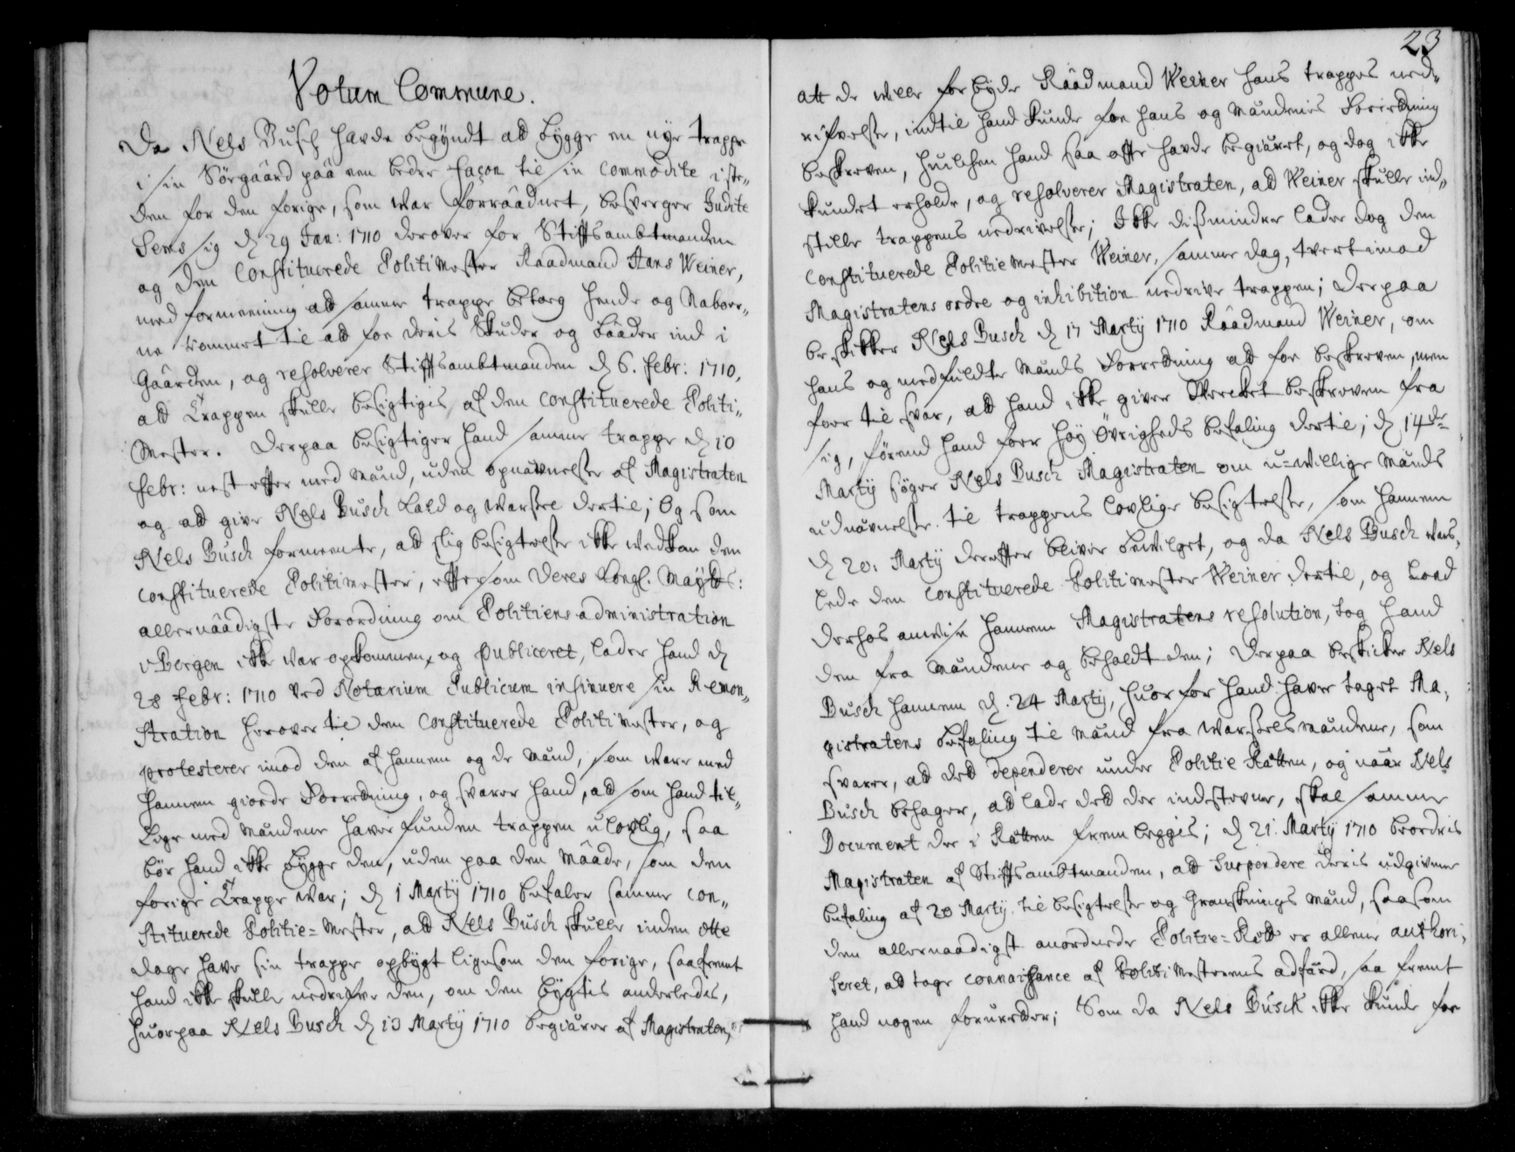 Votum Commune.
Da Niels Busch hafde begyndt at bygge en nye trappe
i sin Sørgaard paa een bedre façon til sin commodite i ste„
den for den forige, som war forraadnet, besverger Judite
Sems sig d. 29 Jan: 1710 derover for Stiftsambtmanden
og den Constituerede Politimester Raadmand Hans Weiner,
med formeening ad samme trappe betog hende og Naboer„
ne rommet til at foe deris Skuder og Baader ind i
Gaarden, og resolverer Stiftsambtmanden d. 6. febr: 1710,
ad Trappen skulle besigtiges af den constituerede Politi„
Mester. Derpaa besigtiger hand samme trappe d. 10
febr: nest efter med Mænd, uden opnævnelse af Magistraten
og ad give Niels Busch Kald og Warsel dertil; Og som
Niels Busch formeente, ad slig besigtelse ikke vedkom den
constituerede Politimester, eftersom Deres Kongl. Mayts:
allernaadigste Forordning om Politiens administration
i Bergen ikke war opkommen, og publiceret, lader hand d.
28 febr: 1710 ved Notarium Publicum insinuere sin Remon„
stration herover til den Constituerede Politimester, og
protesterer imod den af hannem og de Mænd, som ware med
hannem giorde Forretning, og svarer hand, ad som hand til„
lige med Mændene haver funden trappen ulovlig, saa
bør hand ikke bygge den, uden paa den Maade, som den
forige Trappe war; d. 1 Martij 1710 befaler samme con„
stituerede Politie=Mester, ad Niels Busch skulle inden otte
dage have sin trappe opbygt ligesom den forige, saafremt
hand ikke skulle nedrifve den, om den bygtes anderledes,
huorpaa Niels Busch d. 13 Martij 1710 begiærer af Magistraten,
23
att de wille forbyde Raadmand Weiner hans trappes ned„
rifvelse, indtil hand kunde foe hans og Mændenis Forretning
beskreven, huilchen hand saa ofte hafde begiæret, og dog ikke
kundet erholde, og resolverer Magistraten, ad Weiner skulle ind„
stille trappens nedrivelse; Ikke disminder lader dog den
Constituerede Politiemester Weiner, samme dag, tvertimod
Magistratens ordre og inhibition nedrive trappen; Derpaa
beskikker Niels Busch d. 17 Martij 1710 Raadmand Weiner, om
hans og medfuldte Mænds Forretning ad foe beskreven, men
foer til svar, ad hand ikke giver Werket beskreven fra
sig, førend hand foer høy Øvrigheds befaling dertil; d. 14de
Martij søger Niels Busch Magistraten om u=willige Mænds
udnævnelse til trappens lovlige besigtelse, som hannem
d. 20. Martij derefter bliver bevilget, og da Niels Busch wars,
lede den Constituerede Politimester Weiner dertil, og lood
derhos anvise hannem Magistratens resolution, tog hand
den fra Mændene og beholdt den; Derpaa beskicker Niels
Busch hannem d. 24 Martij, huorfor hand haver taget Ma,
gistratens befaling til Mænd fra Warselsmændene, som
svarer, ad det dependerer under Politie Rætten, og naar Niels
Busch behager, ad lade det der indstevne, skal samme
Document der i Rætten fremleggis; d. 21. Martij 1710 beordris
Magistraten af Stiftsambtmanden, ad Suspendere deris udgivne
befaling af 20 Martij til besigtelse og Granskings Mænd, saasom
den allernaadigst anordnede Politie=Ræt er allene authori,
seret, ad tage connoissance af Politimesterens adfærd, saa fremt
hand nogen foruretter; Som da Niels Busch ikke kunde foe